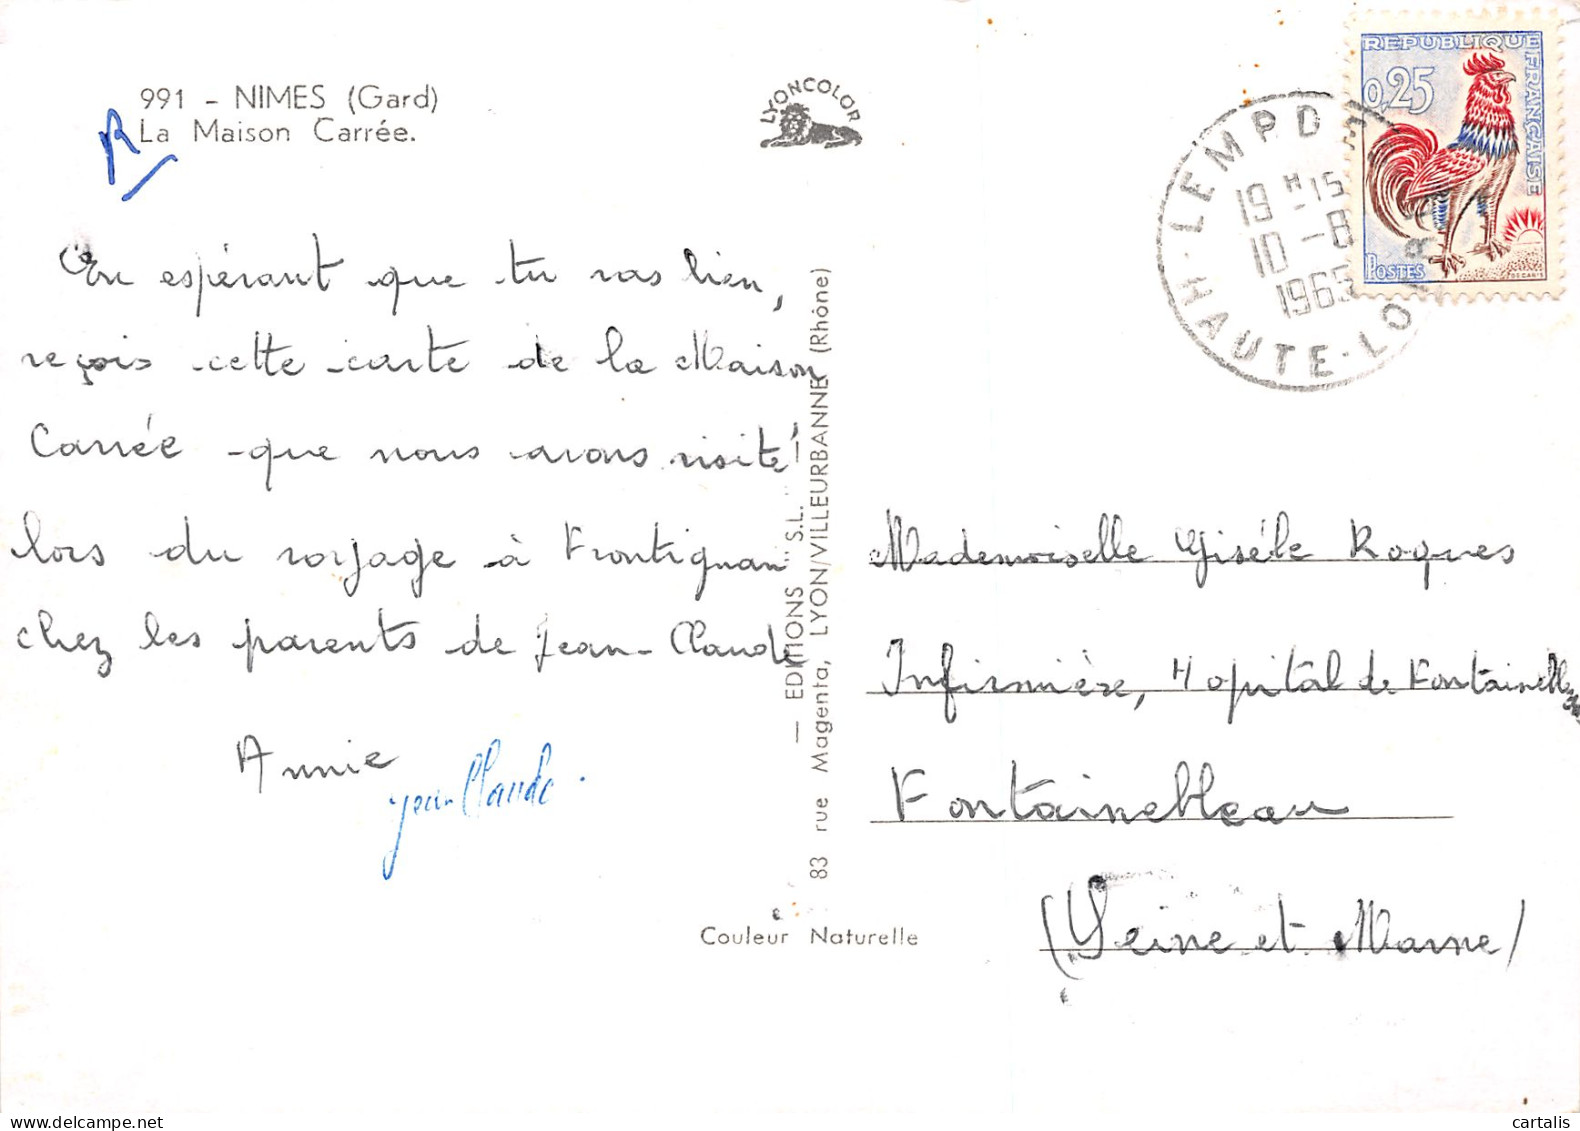 991 - NIMES (Gard)
La Maison Carrée.
R
LYONCOLOR
En espérant que tu vas bien,
reçois cette carte de la Maison
Carrée que nous avons visité
lors du voyage à Frontignan
chez les parents de Jean-Claude
Annie
Jean Claude.
— EDITIONS "S.L." —
83 rue Magenta, LYON/VILLEURBANNE (Rhône)
Couleur Naturelle
REPUBLIQUE FRANÇAISE
0,25
POSTES
DECARIS
LEMPDES
19 H 15
10 - 8
1965
HAUTE-LOIRE
Mademoiselle Gisèle Roques
Infirmière, Hopital de Fontainebleau
Fontainebleau
(Seine et Marne)
cartalis